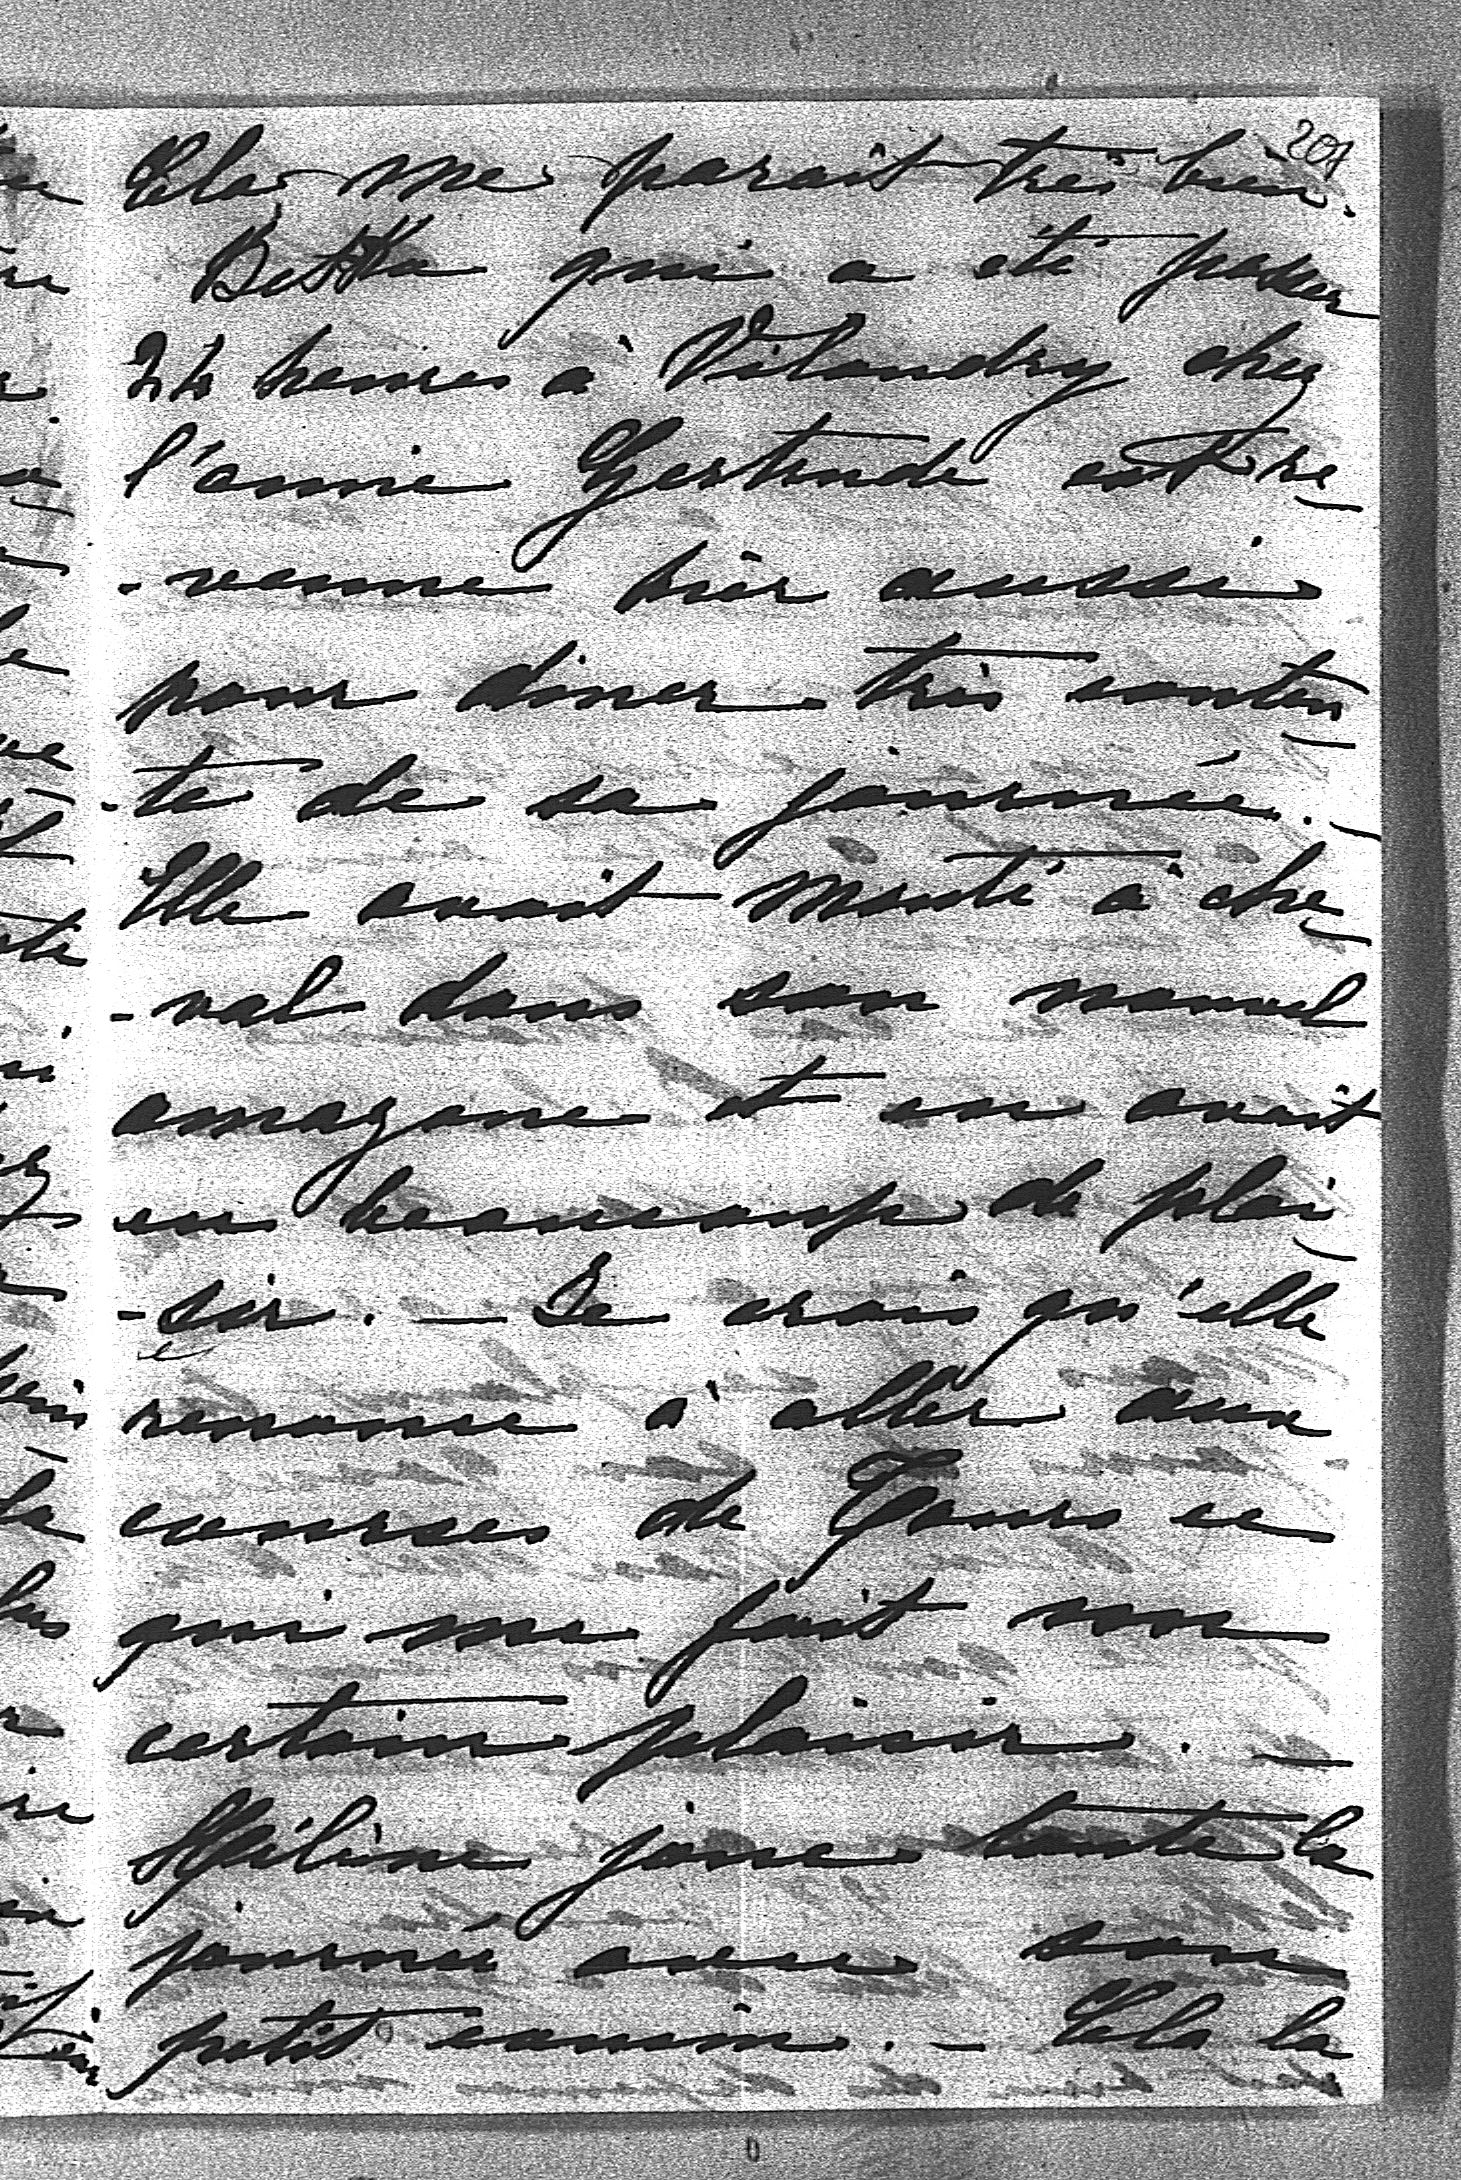 207
Cela me parait très bien.
Bettka qui a été passer
24 heures à Vilandry chez
l'amie Gertrude est re
-venue hier aussi
pour diner très conten
-te de sa journée. -
Elle avait monté à che
-val dans son nouvel
amazone et en avait
eu beaucoup de plai
-sir. — Je crois qu'elle
renonce à aller aux
courses de Tours ce
qui me fait un
certain plaisir. —
Hélène joue toute la
journée avec son
petit cousin. — Cela la